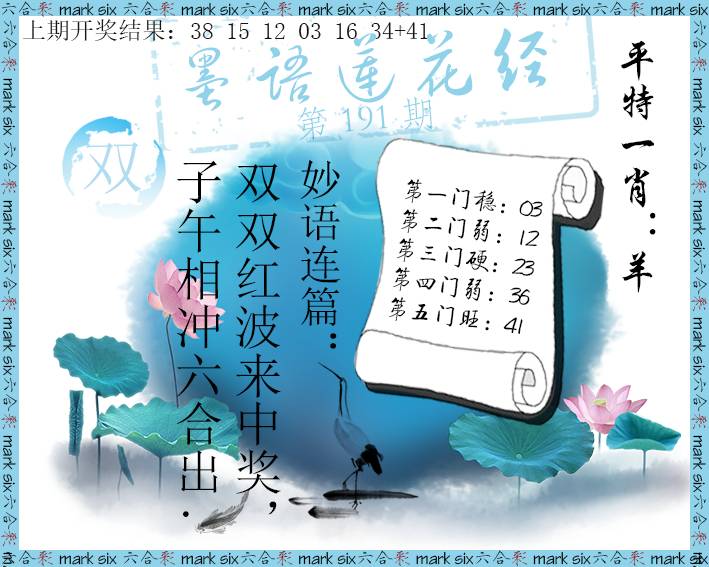 上期开奖结果：38 15 12 03 16 34+41
墨语莲花经
第 191 期
双
平特一肖：羊
第一门稳：03
第二门弱：12
第三门硬：23
第四门弱：36
第五门旺：41
妙语连篇：
双双红波来中奖，
子午相冲六合出.
mark six 六合彩 mark six 六合彩 mark six 六合彩 mark six 六合彩 mark six 六合彩